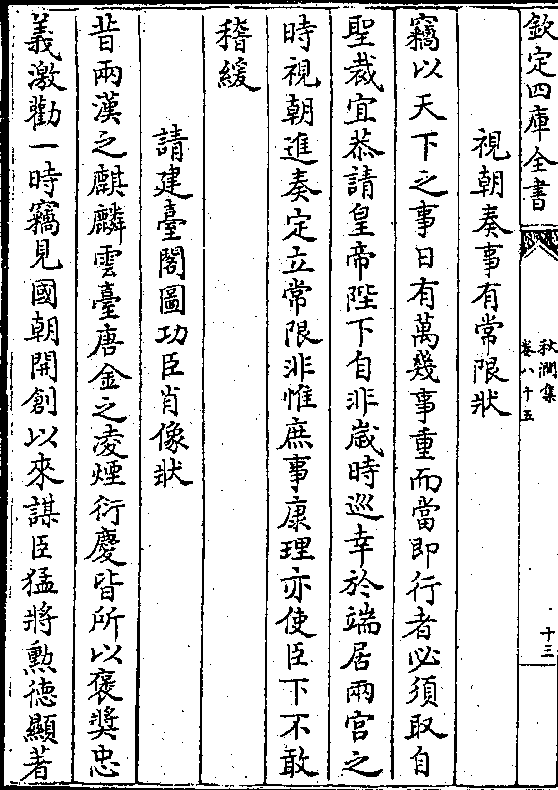 欽定四庫全書
秋澗集
卷八十五
十三
視朝奏事有常限狀
竊以天下之事日有萬幾事重而當即行者必須取自
聖裁宜恭請皇帝陛下自非歲時巡幸於端居兩宮之
時視朝進奏定立常限非惟庶事康理亦使臣下不敢
稽緩
請建臺閣圖功臣肖像狀
昔兩漢之麒麟雲臺唐金之凌煙衍慶皆所以褒奬忠
義激勸一時竊見國朝開創以來謀臣猛將勲徳顯著